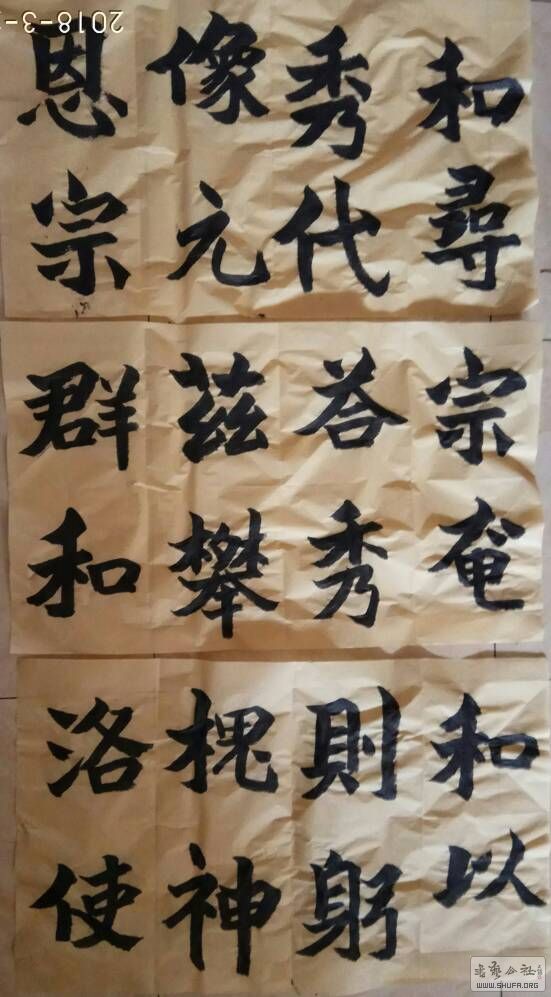 和尋
秀代
像元
恩宗
宗奄
荅秀
茲攀
群和
和以
則躬
槐神
洛使
2018-3-
书艺公社
WWW.SHUFA.ORG